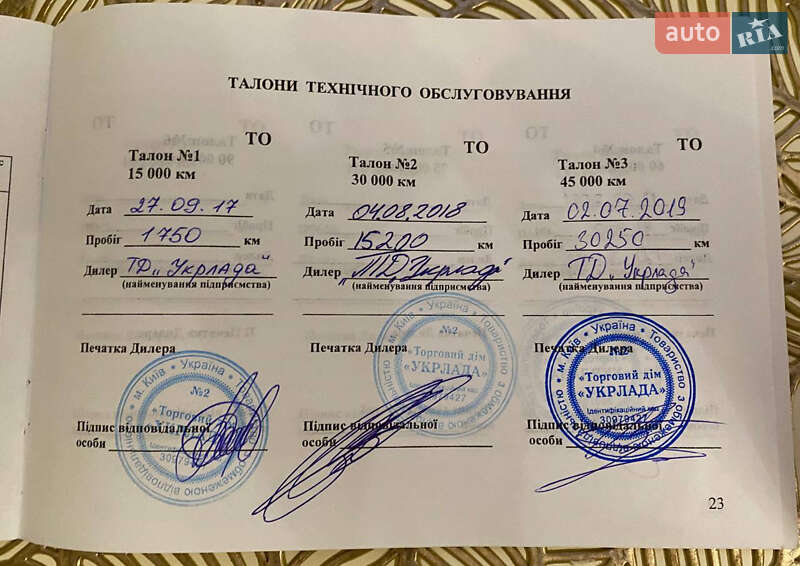 auto RIA.com
ТАЛОНИ ТЕХНІЧНОГО ОБСЛУГОВУВАННЯ
ТО
Талон №1
15 000 км
Дата 27.09.17
Пробіг 1750 км
Дилер ТД „Укрлада"
(найменування підприємства)
Печатка Дилера
Підпис відповідальної
особи
ТО
Талон №2
30 000 км
Дата 04.08.2018
Пробіг 15200 км
Дилер „ТД Укрлада"
(найменування підприємства)
Печатка Дилера
Підпис відповідальної
особи
ТО
Талон №3
45 000 км
Дата 02.07.2019
Пробіг 30250 км
Дилер ТД „Укрлада"
(найменування підприємства)
Печатка Дилера
Підпис відповідальної
особи
м. Київ • Україна
№2
«Торговий
м. Київ • Україна • Товариство з обмеженою відповідальністю
№2
«Торговий дім
«УКРЛАДА»
м. Київ • Україна • Товариство з обмеженою відповідальністю
№2
«Торговий дім
«УКРЛАДА»
Ідентифікаційний код
30979427
23